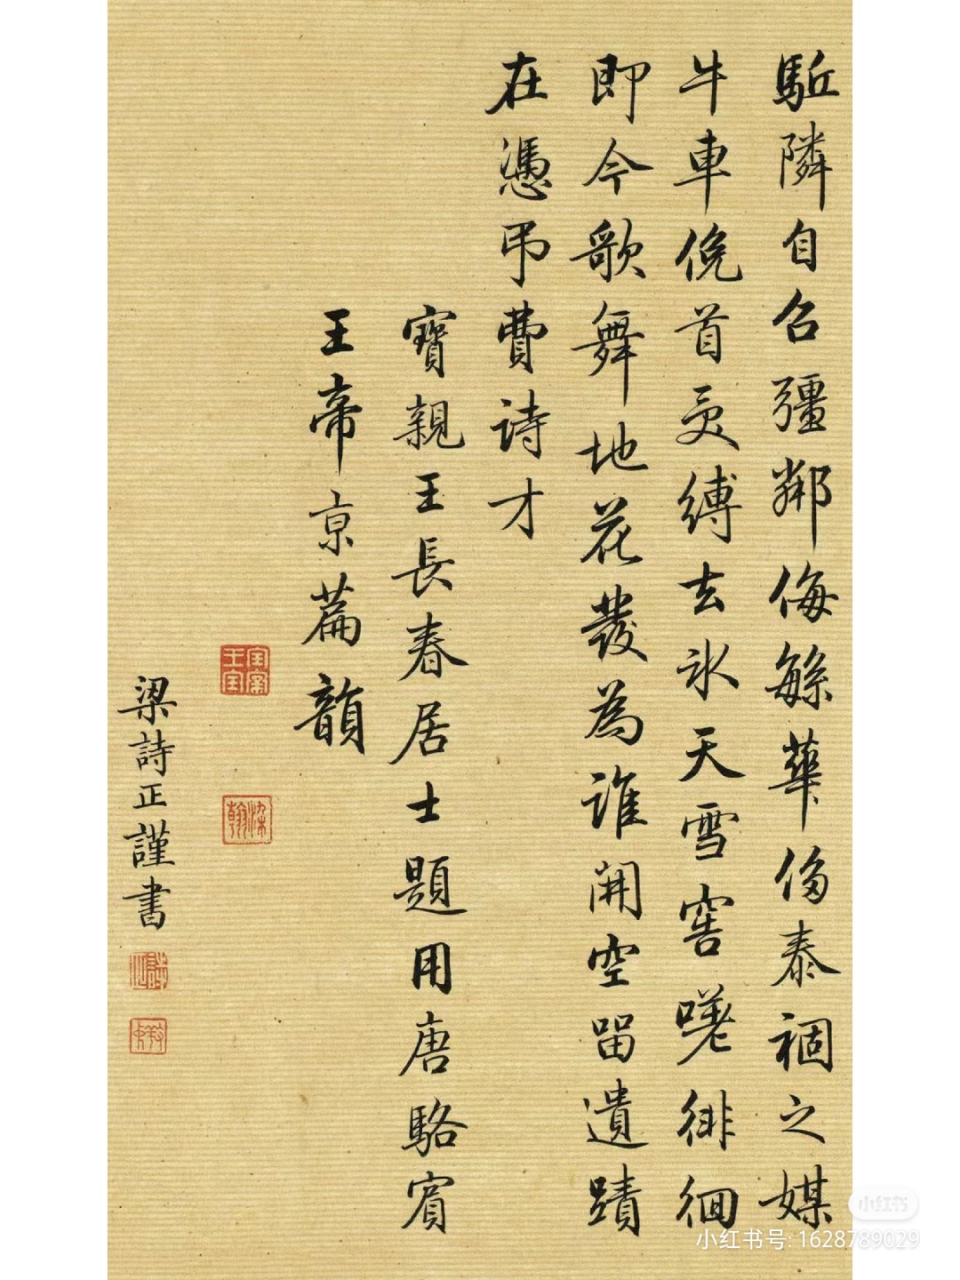 駈隣自召彊鄰侮緐華侈泰禍之媒
牛車俛首受縛去氷天雪窖嘆徘徊
即今歌舞地花發為誰開空留遺蹟
在憑弔費詩才
寳親王長春居士題用唐駱賓
王帝京篇韻
梁詩正謹書
小红书
小红书号: 1628789029